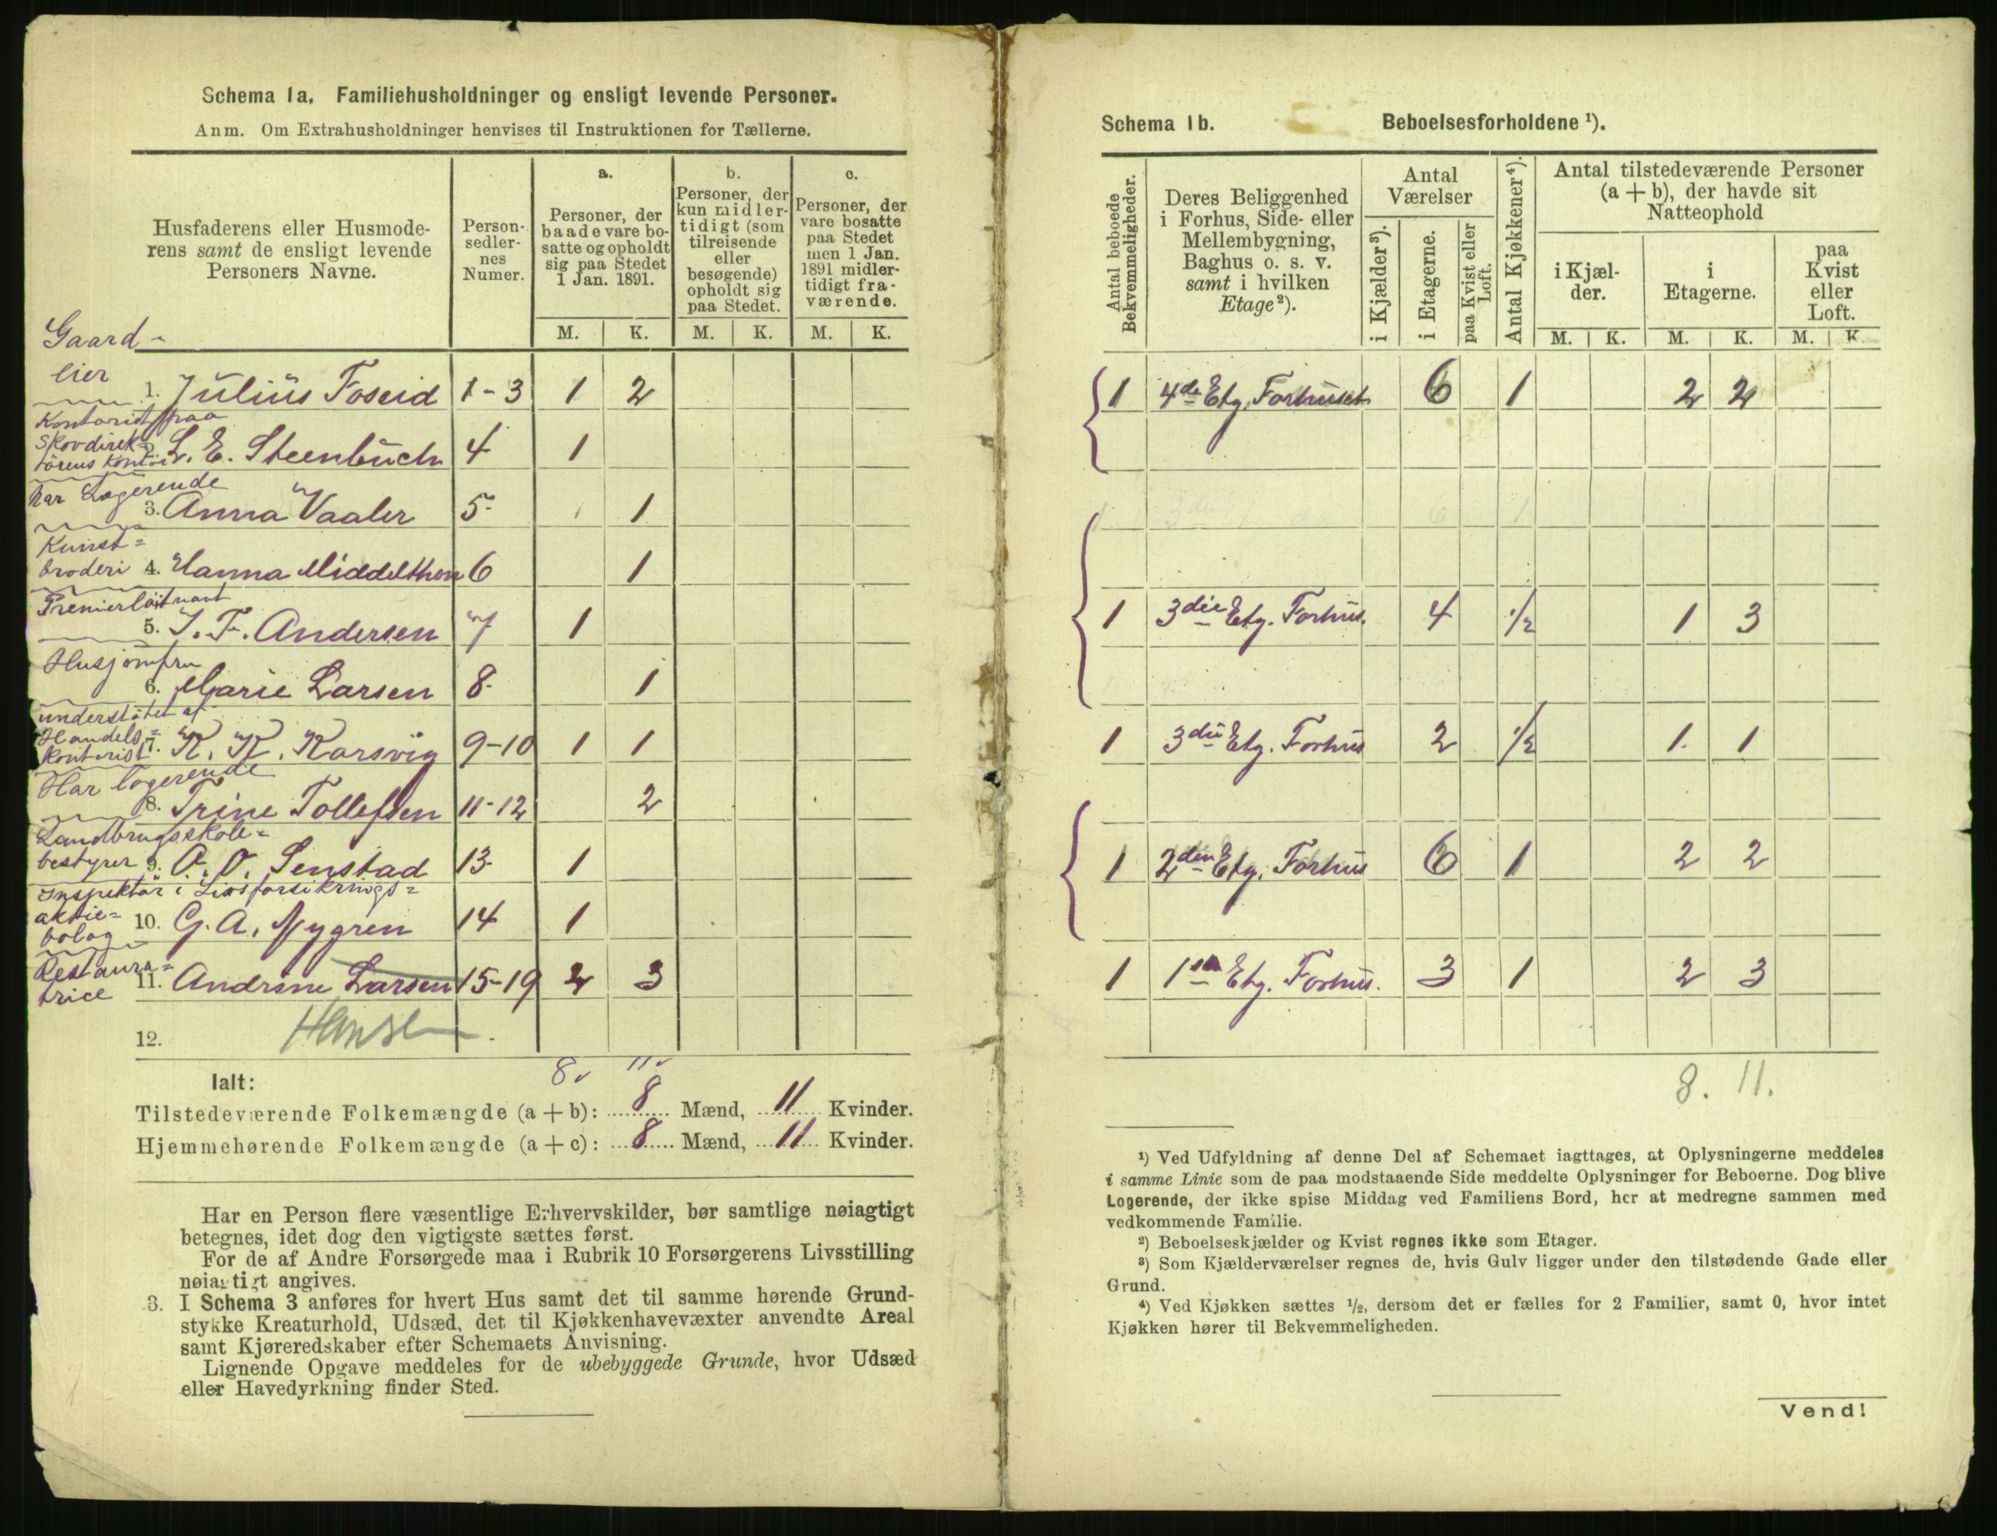 Schema 1a. Familiehusholdninger og ensligt levende Personer.
Anm. Om Extrahusholdninger henvises til Instruktionen for Tællerne.
Husfaderens eller Husmoderens samt de ensligt levende Personers Navne.
Personsedlernes Numer.
a. Personer, der baade vare bosatte og opholdt sig paa Stedet 1 Jan. 1891.
b. Personer, der kun midlertidigt (som tilreisende eller besøgende) opholdt sig paa Stedet.
c. Personer, der vare bosatte paa Stedet men 1 Jan. 1891 midlertidigt fraværende.
M. K. M. K. M. K.
Gaard-
eier
1. Julius Foseid 1-3 1 2
Kontorist paa
Skovdirek=
törens Kontor
2. L. E. Steenbuch 4 1
har Logerende
3. Anna Vaaler 5 1
Kunst=
broderi
4. Hanna Middelthon 6 1
Premierløitnant
5. J. F. Andersen 7 1
Husjomfru
6. Marie Larsen 8 1
understötet af
Handels=
kontorist
7. K. K. Korsvig 9-10 1 1
Har logerende
8. Trine Tollefsen 11-12 2
Landbrugsskole=
bestyrer
9. A. O. Senstad 13 1
Inspektör i Livsforsikrings=
aktie=
bolag
10. G. A. Nygren 14 1
Restaura=
trice
11. Andrine Larsen 15-19 2 3
12. Hansen
8 11
Ialt:
Tilstedeværende Folkemængde (a + b): 8 Mænd, 11 Kvinder.
Hjemmehørende Folkemængde (a + c): 8 Mænd, 11 Kvinder.
Har en Person flere væsentlige Erhvervskilder, bør samtlige nøiagtigt
betegnes, idet dog den vigtigste sættes først.
For de af Andre Forsørgede maa i Rubrik 10 Forsørgerens Livsstilling
nøiagtigt angives.
3. I Schema 3 anføres for hvert Hus samt det til samme hørende Grund-
stykke Kreaturhold, Udsæd, det til Kjøkkenhavevæxter anvendte Areal
samt Kjøreredskaber efter Schemaets Anvisning.
Lignende Opgave meddeles for de ubebyggede Grunde, hvor Udsæd
eller Havedyrkning finder Sted.
Schema 1b. Beboelsesforholdene ¹).
Antal beboede Bekvemmeligheder.
Deres Beliggenhed i Forhus, Side- eller Mellembygning, Baghus o. s. v. samt i hvilken Etage²).
Antal Værelser
i Kjælder³).
i Etagerne.
paa Kvist eller Loft.
Antal Kjøkkener⁴).
Antal tilstedeværende Personer (a + b), der havde sit Natteophold
i Kjælder.
i Etagerne.
paa Kvist eller Loft.
M. K. M. K. M. K.
1 4de Etg. Forhuset 6 1 2 2
1 3die Etg. Forhus. 4 1/2 1 3
1 3die Etg. Forhus 2 1/2 1 1
1 2den Etg. Forhus 6 1 2 2
1 1ste Etg. Forhus. 3 1 2 3
8. 11.
¹) Ved Udfyldning af denne Del af Schemaet iagttages, at Oplysningerne meddeles
i samme Linie som de paa modstaaende Side meddelte Oplysninger for Beboerne. Dog blive
Logerende, der ikke spise Middag ved Familiens Bord, her at medregne sammen med
vedkommende Familie.
²) Beboelseskjælder og Kvist regnes ikke som Etager.
³) Som Kjælderværelser regnes de, hvis Gulv ligger under den tilstødende Gade eller
Grund.
⁴) Ved Kjøkken sættes ½, dersom det er fælles for 2 Familier, samt 0, hvor intet
Kjøkken hører til Bekvemmeligheden.
Vend!